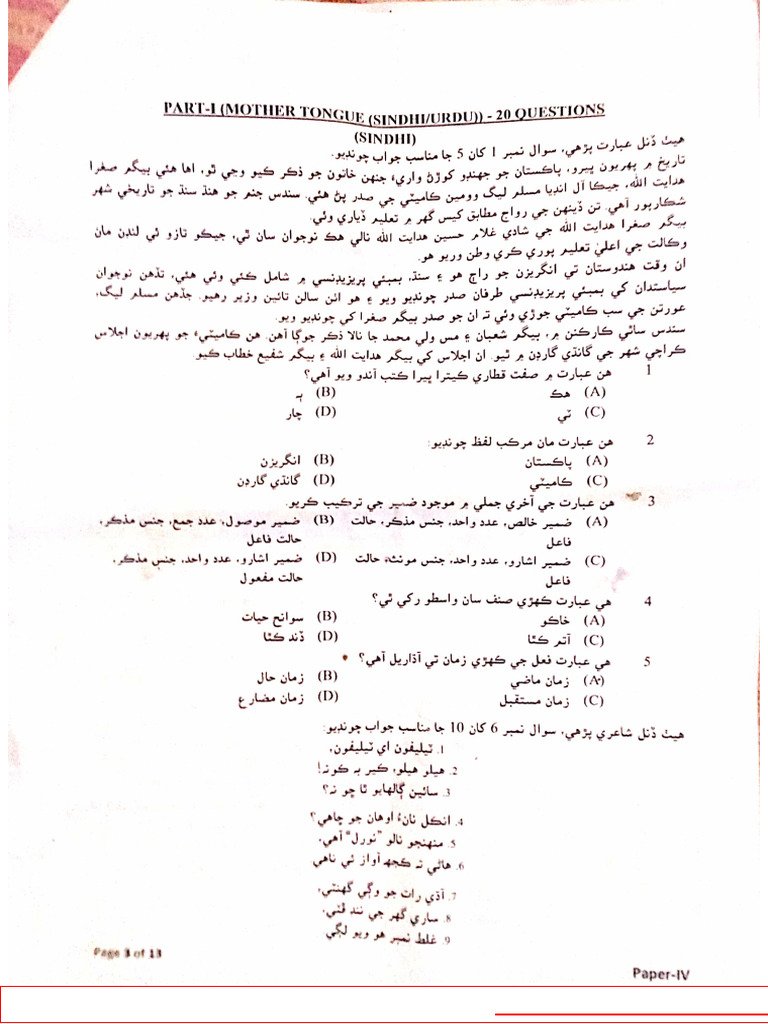 PART-I (MOTHER TONGUE (SINDHI/URDU)) - 20 QUESTIONS
(SINDHI)
هيٺ ڏنل عبارت پڙهي، سوال نمبر 1 کان 5 جا مناسب جواب چونڊيو.
تاريخ ۾ پهريون ڀيرو، پاڪستان جو جهنڊو کوڙڻ واريءَ جنهن خاتون جو ذڪر ڪيو وڃي ٿو، اها هئي بيگم صغرا
هدايت الله، جيڪا آل انڊيا مسلم ليگ وومين ڪاميٽي جي صدر پڻ هئي. سندس جنم جو هنڌ سنڌ جو تاريخي شهر
شڪارپور آهي. تن ڏينهن جي رواج مطابق کيس گهر ۾ تعليم ڏياري وئي.
بيگم صغرا هدايت الله جي شادي غلام حسين هدايت الله نالي هڪ نوجوان سان ٿي، جيڪو تازو ئي لنڊن مان
وڪالت جي اعليٰ تعليم پوري ڪري وطن وريو هو.
ان وقت هندوستان تي انگريزن جو راڄ هو ۽ سنڌ، بمبئي پريزيڊنسي ۾ شامل ڪئي وئي هئي، تڏهن نوجوان
سياستدان کي بمبئي پريزيڊنسي طرفان صدر چونڊيو ويو ۽ هو اٺن سالن تائين وزير رهيو. جڏهن مسلم ليگ،
عورتن جي سب ڪاميٽي جوڙي وئي تہ ان جو صدر بيگم صغرا کي چونڊيو ويو.
سندس ساٿي ڪارڪنن ۾، بيگم شعبان ۽ مس ولي محمد جا نالا ذڪر جوڳا آهن. هن ڪاميٽيءَ جو پهريون اجلاس
ڪراچي شهر جي گانڌي گارڊن ۾ ٿيو. ان اجلاس کي بيگم هدايت الله ۽ بيگم شفيع خطاب ڪيو.
1 هن عبارت ۾ صفت قطاري ڪيترا ڀيرا ڪتب آندو ويو آهي؟
(A) هڪ (B) ٻہ
(C) ٽي (D) چار
2 هن عبارت مان مرڪب لفظ چونڊيو:
(A) پاڪستان (B) انگريزن
(C) ڪاميٽي (D) گانڌي گارڊن
3 هن عبارت جي آخري جملي ۾ موجود ضمير جي ترڪيب ڪريو.
(A) ضمير خالص، عدد واحد، جنس مذڪر، حالت (B) ضمير موصول، عدد جمع، جنس مذڪر،
فاعل حالت فاعل
(C) ضمير اشارو، عدد واحد، جنس مونث، حالت (D) ضمير اشارو، عدد واحد، جنس مذڪر،
فاعل حالت مفعول
4 هي عبارت ڪهڙي صنف سان واسطو رکي ٿي؟
(A) خاڪو (B) سوانح حيات
(C) آتم ڪٿا (D) ڏند ڪٿا
5 هي عبارت فعل جي ڪهڙي زمان تي آڌاريل آهي؟
(A) زمان ماضي (B) زمان حال
(C) زمان مستقبل (D) زمان مضارع
هيٺ ڏنل شاعري پڙهي، سوال نمبر 6 کان 10 جا مناسب جواب چونڊيو:
1. ٽيليفون اي ٽيليفون،
2. هيلو هيلو، ڪير بہ ڪونہ!
3. سائين ڳالهايو ٿا ڇو نہ؟
4. انڪل نانءُ اوهان جو ڇاهي؟
5. منهنجو نالو "نورل" آهي،
6. هاڻي تہ ڪجهہ آواز ئي ناهي
7. آڌي رات جو وڳي گهنٽي،
8. ساري گهر جي ننڊ ڦٽي،
9. غلط نمبر هو ويو لڳي
Page 3 of 13
Paper-IV